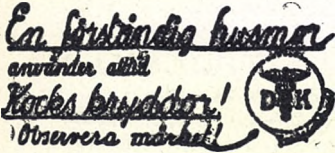 En förståndig husmor
använder alltid
Kocks kryddor!
Observera märket!
D K